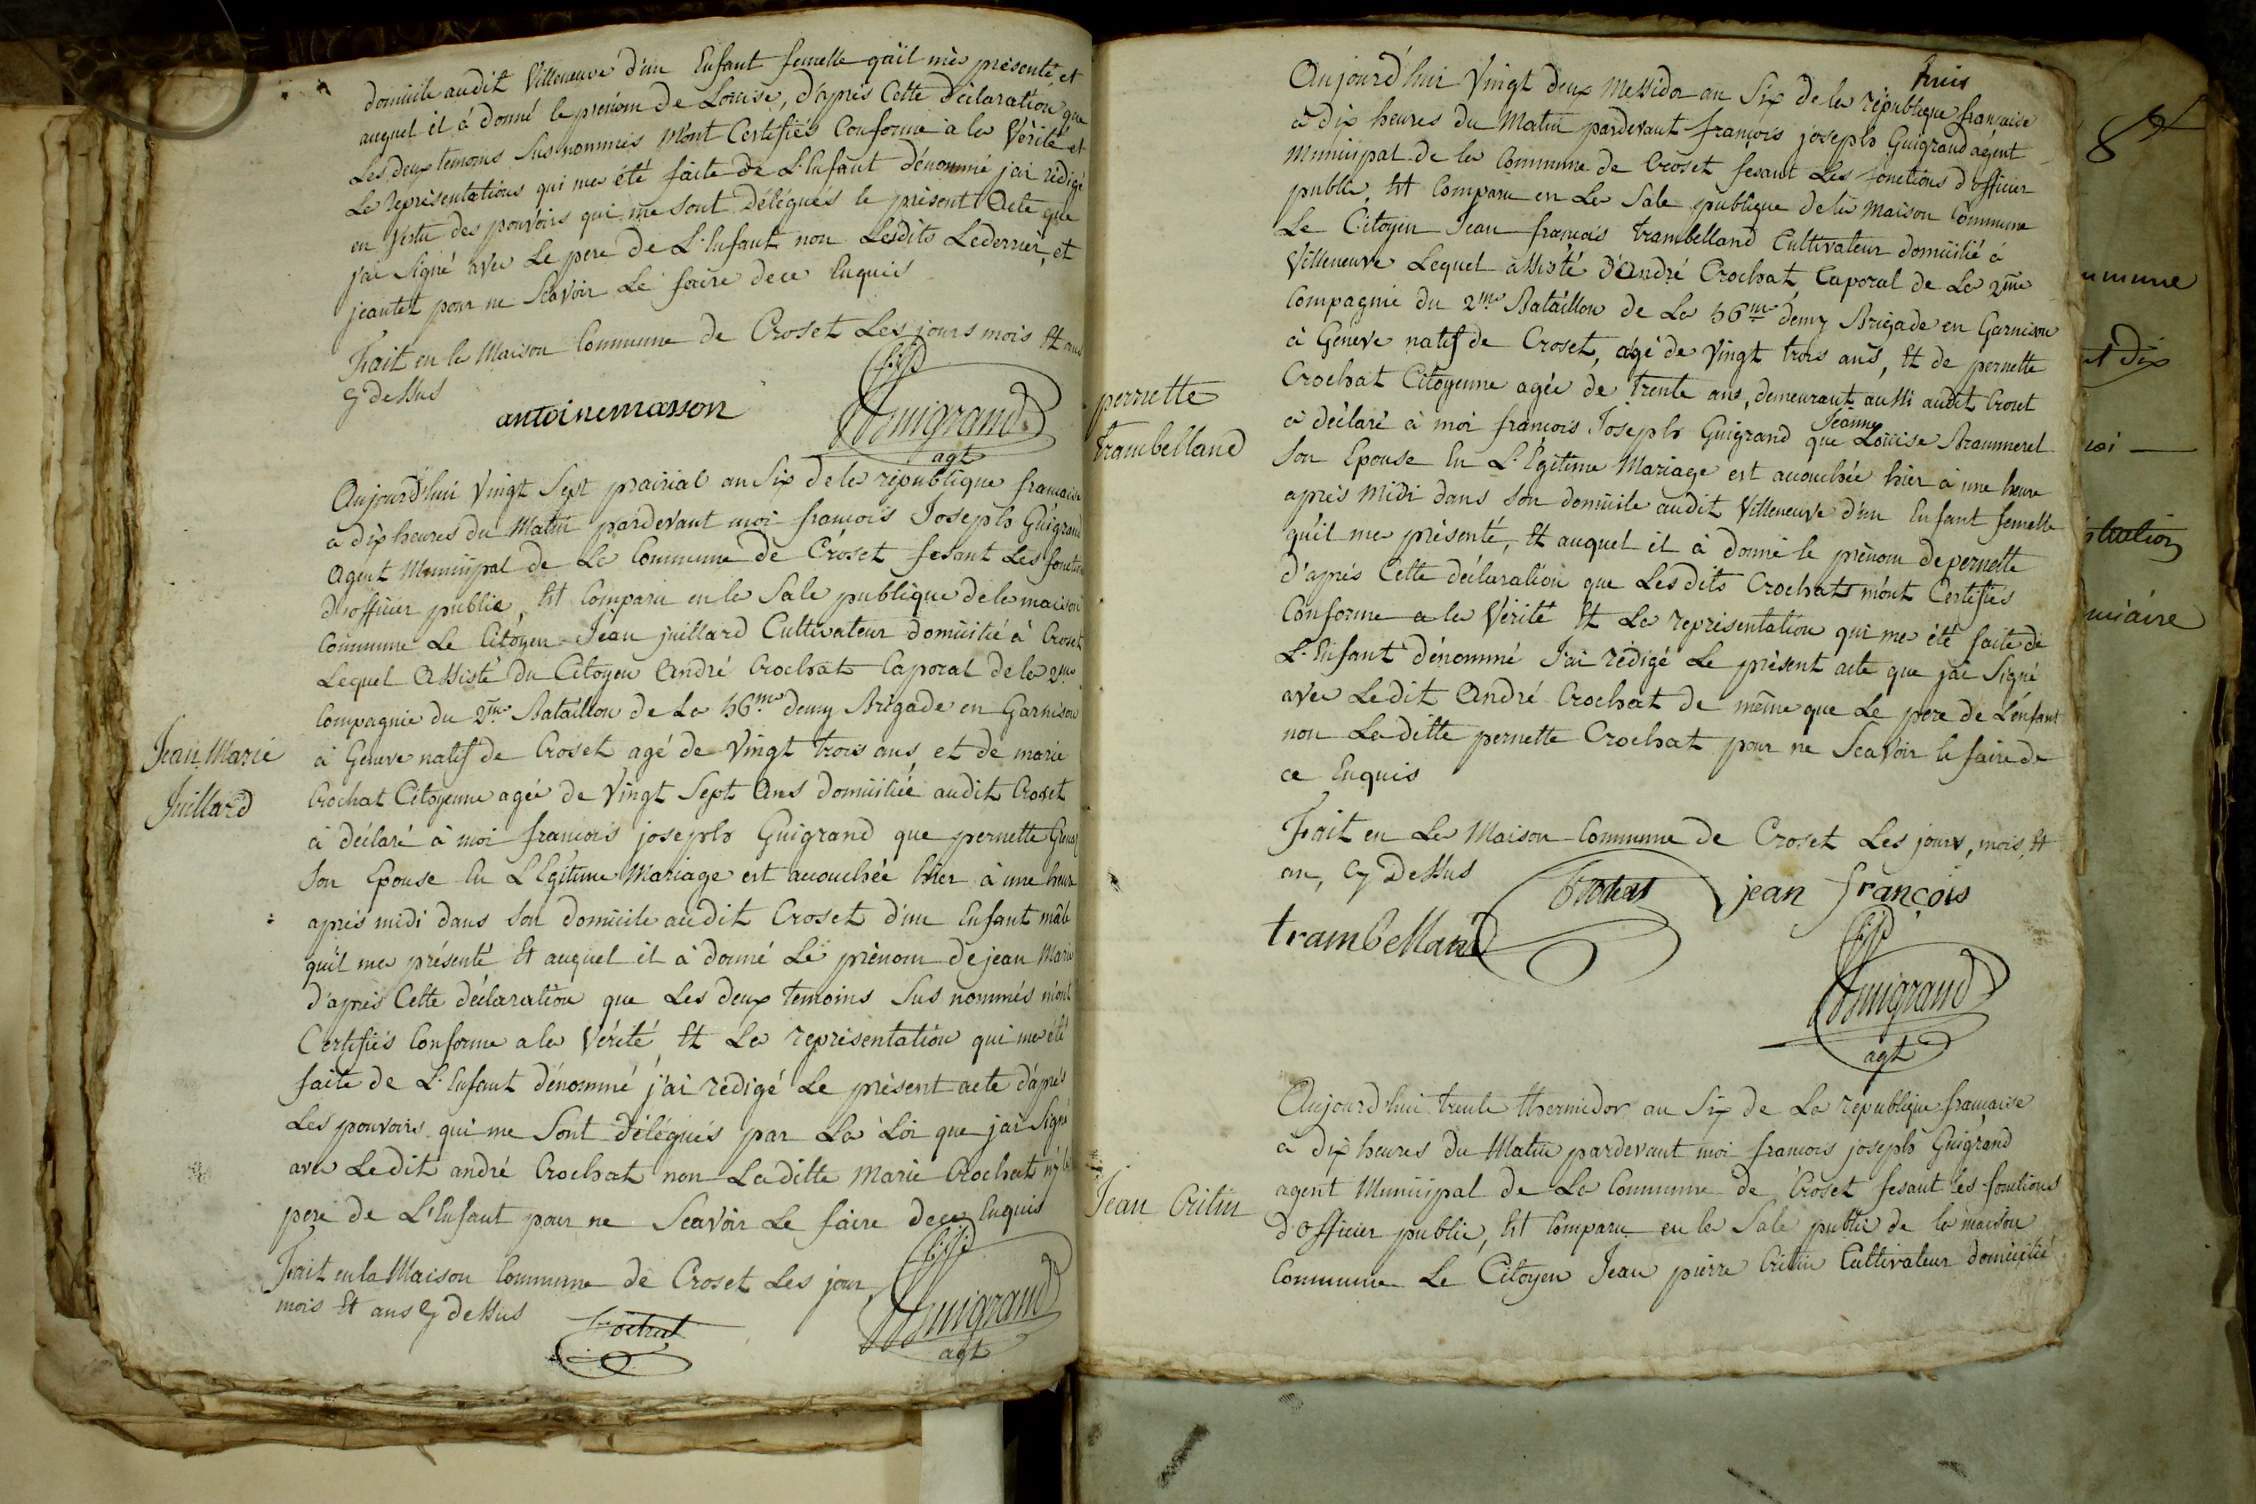 domicile audit Villeneuve d'un Enfant femelle qu'il m'a présenté et
auquel il à donné le prénom de Louise, d'après Cette déclaration que
Les deux temoins Susnommés M'ont Certifiés Conforme a la Vérité et
La représentations qui ma été faite de L'Enfant dénommé j'ai rédigé
en vertu des pouvoirs qui me sont délégués le présent Acte que
j'ai signé avec Le pere de L'Enfant non Lesdits Lederrier, et
jeantet pour ne Scavoir Le faire dece Enquis
Fait en la Maison Commune de Croset Les jours mois Et ans
Cy dessus
antoine masson
Guigrand
agt
Aujourd'hui Vingt Sept prairial an Six de la république francaise
a dix heures du Matin pardevant moi francois Joseph Guigrand
Agent Municipal de La Commune de Croset fesant Les fonctions
d'officier public, Est Comparu en la Sale publique de la maison
Commune Le Citoyen Jean juillard Cultivateur domicilié à Croset
Lequel Assisté du Citoyen André Crochat Caporal de la 2me
Compagnie du 2me Bataillon de La 56me demy Brigade en Garnison
à Geneve natif de Croset agé de Vingt trois ans, et de marie
Crochat Citoyenne agée de Vingt Sept Ans domiciliée audit Croset
Jean Marie
Juillard
à déclaré à moi francois joseph Guigrand que pernette
Son Epouse En L'Egitime Mariage est accouchée hier à une heure
après midi dans Son domicile audit Croset d'un Enfant mâle
qu'il m'a présenté Et auquel il à donné Le prénom de jean Marie
d'après Cette déclaration que Les deux temoins Sus nommés m'ont
Certifiés Conforme a la Vérité, Et La représentation qui ma été
faite de L'Enfant dénommé j'ai rédigé Le présent acte d'après
Les pouvoirs qui me Sont délégués par La Loi que j'ai Signé
avec Ledit andré Crochat non Laditte Marie Crochat ny le
pere de L'Enfant pour ne Scavoir Le faire dece Enquis
Fait en la Maison Commune de Croset Les jour,
mois Et ans Cy dessus
Crochat
Guigrand
agt
huis
Aujourd'hui Vingt deux Messidor an Six de la république francaise
à dix heures du Matin pardevant françois joseph Guigrand agent
Municipal de la Commune de Croset fesant Les fonctions d'officier
public, Est Comparu en La Sale publique de la Maison Commune
Le Citoyen Jean francois trambelland Cultivateur domicilié à
Villeneuve Lequel assisté d'André Crochat Caporal de La 2me
Compagnie du 2me Bataillon de La 56me demy Brigade en Garnison
à Geneve natif de Croset, agé de Vingt trois ans, Et de pernette
Crochat Citoyenne agée de trente ans, demeurant aussi audit Croset
pernette
trambelland
à déclaré à moi francois Joseph Guigrand que Jeanne Louise Brammerel
Son Epouse En L'Egitime Mariage est accouchée hier à une heure
après Midi dans Son domicile audit Villeneuve d'un Enfant femelle
qu'il ma présenté, Et auquel il à donné le prénom de pernette
d'après Cette déclaration que Lesdits Crochats m'ont Certifiés
Conforme a la Vérité Et La représentation qui ma été faite de
L'Enfant dénommé J'ai rédigé Le présent acte que j'ai Signé
avec Ledit André Crochat de même que Le pere de L'énfant
non Laditte pernette Crochat pour ne Scavoir le faire de
ce Enquis
Fait en La Maison Commune de Croset Les jours, mois, Et
an, Cy Dessus
Crochat
jean françois
trambelland
Guigrand
agt
Aujourd'hui trente thermidor an Six de La république francaise
à dix heures du Matin pardevant moi francois joseph Guigrand
agent Municipal de La Commune de Croset fesant les fonctions
Jean Critin
d'officier public, Est Comparu en la Sale public de la maison
Commune Le Citoyen Jean pierre Critin Cultivateur domicilié